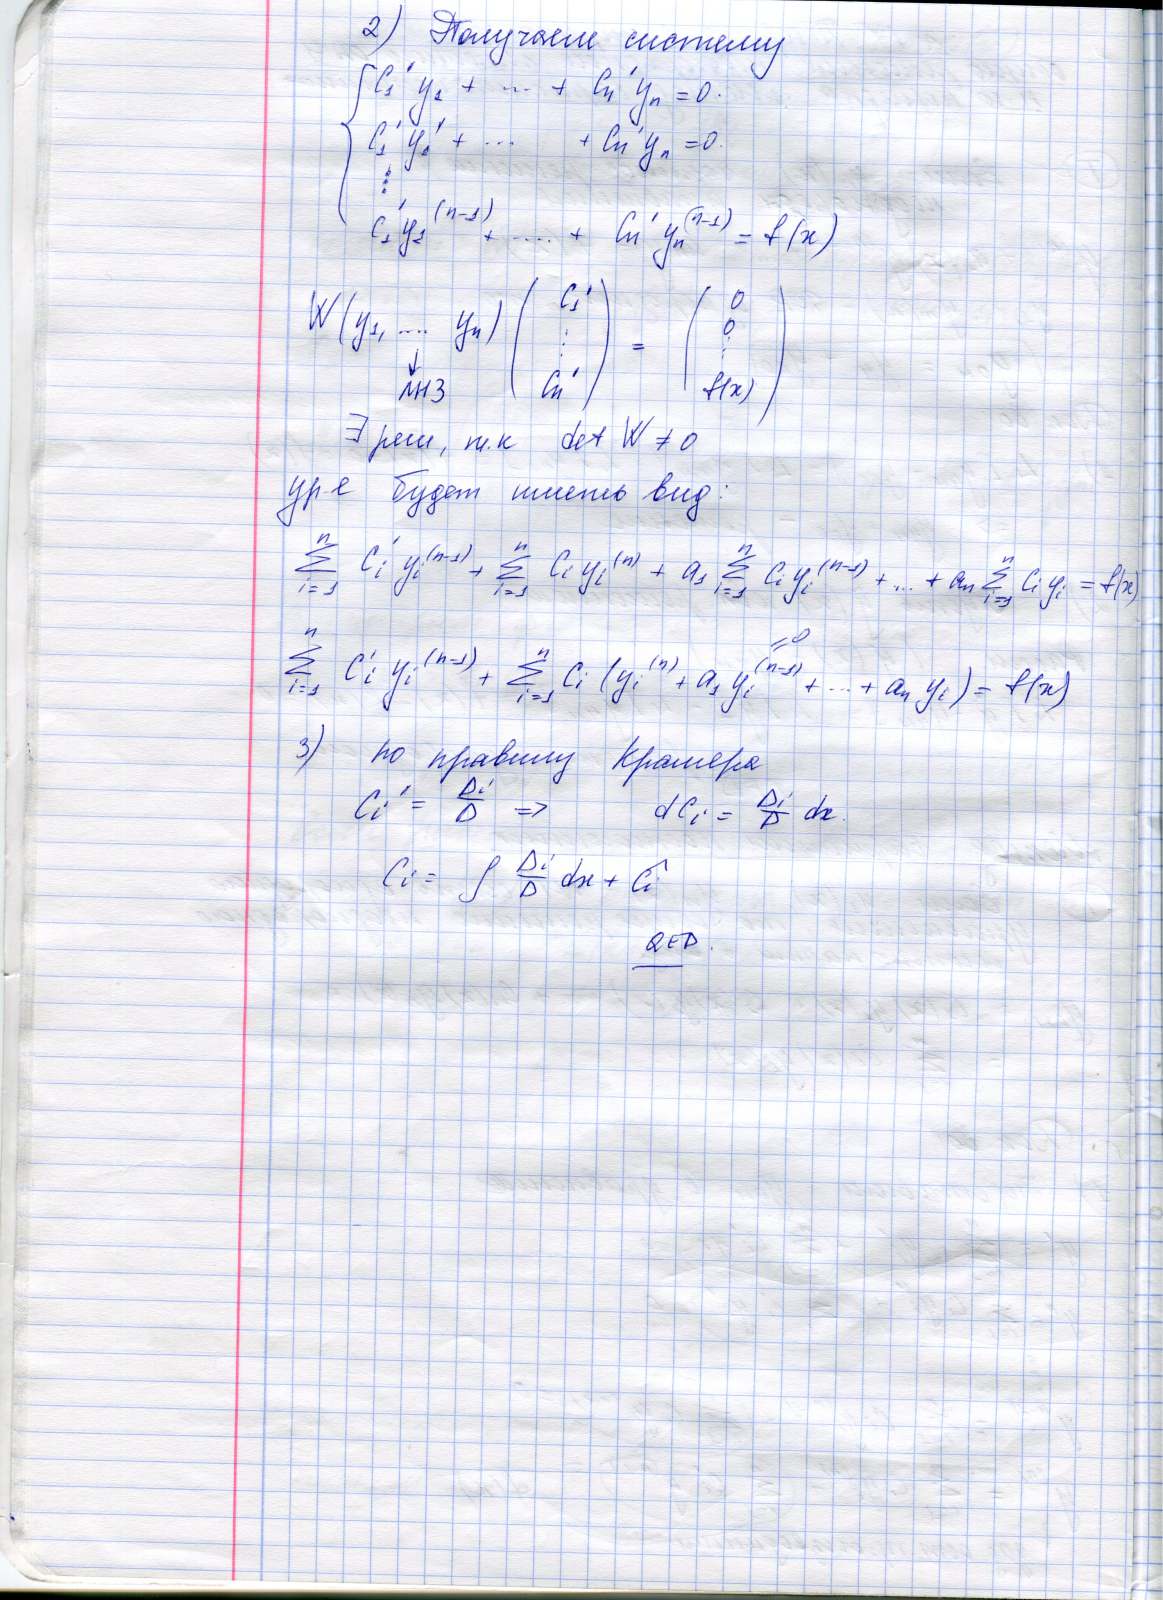 2) Получаем систему
C₁'y₁ + ... + Cₙ'yₙ = 0.
C₁'y₁' + ... + Cₙ'yₙ = 0.
⋮
C₁'y₁⁽ⁿ⁻¹⁾ + .... + Cₙ'yₙ⁽ⁿ⁻¹⁾ = f(x)
W(y₁, .... yₙ) (C₁' ⋮ Cₙ') = (0 0 ⋮ f(x))
↓
ЛНЗ
∃ реш, т.к det W ≠ 0
ур-е будет иметь вид:
∑ⁿᵢ₌₁ Cᵢ' yᵢ⁽ⁿ⁻¹⁾ + ∑ⁿᵢ₌₁ Cᵢ yᵢ⁽ⁿ⁾ + a₁ ∑ⁿᵢ₌₁ Cᵢ yᵢ⁽ⁿ⁻¹⁾ + ... + aₙ ∑ⁿᵢ₌₁ Cᵢ yᵢ = f(x)
= 0
∑ⁿᵢ₌₁ Cᵢ' yᵢ⁽ⁿ⁻¹⁾ + ∑ⁿᵢ₌₁ Cᵢ (yᵢ⁽ⁿ⁾ + a₁ yᵢ⁽ⁿ⁻¹⁾ + ... + aₙ yᵢ) = f(x)
3) по правилу Крамера
Cᵢ' = Dᵢ/D => dCᵢ = Dᵢ/D dx.
Cᵢ = ∫ Dᵢ/D dx + Ĉᵢ
QED.